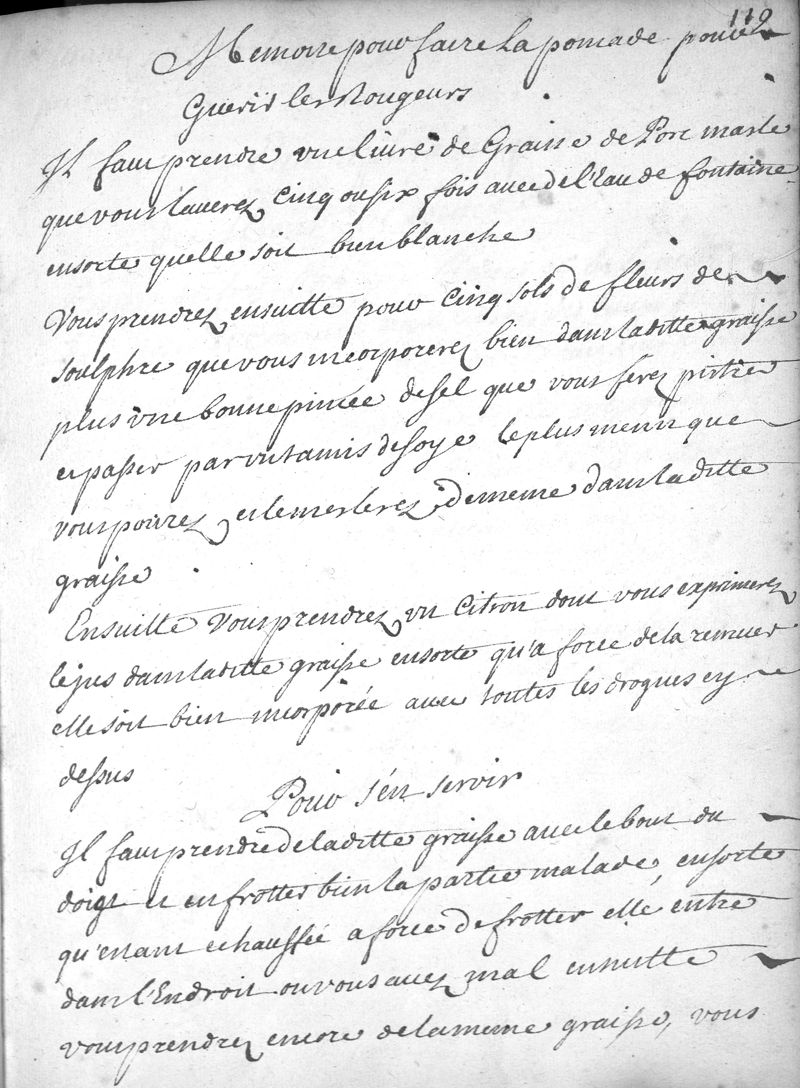 119
Memoire pour faire La pomade pour
Guerir les Rougeurs
Il faut prendre une livre de Graisse de Porc masle
que vous laverez cinq ou six fois avec de l'Eau de fontaine
ensorte quelle soit bien blanche
Vous prendrez ensuitte pour cinq sols de fleurs de
soulphre que vous incorporerez bien dans laditte graisse
plus une bonne pincée de sel que vous ferez
et passer par un tamis de soye le plus menu que
vous pourez et le meslerez de meme dans laditte
graisse
Ensuitte vous prendrez un Citron dont vous exprimerez
le jus dans laditte graisse ensorte qu'a force de la remuer
elle soit bien incorporée avec toutes les drogues cy
dessus
Pour s'en servir
Il faut prendre de laditte graisse avec le bout du
doigt et en frotter bien la partie malade, ensorte
qu'etant echauffée a force de frotter elle entre
dans l'Endroit ou vous avez mal ensuitte
vous prendrez encore de la meme graisse, vous